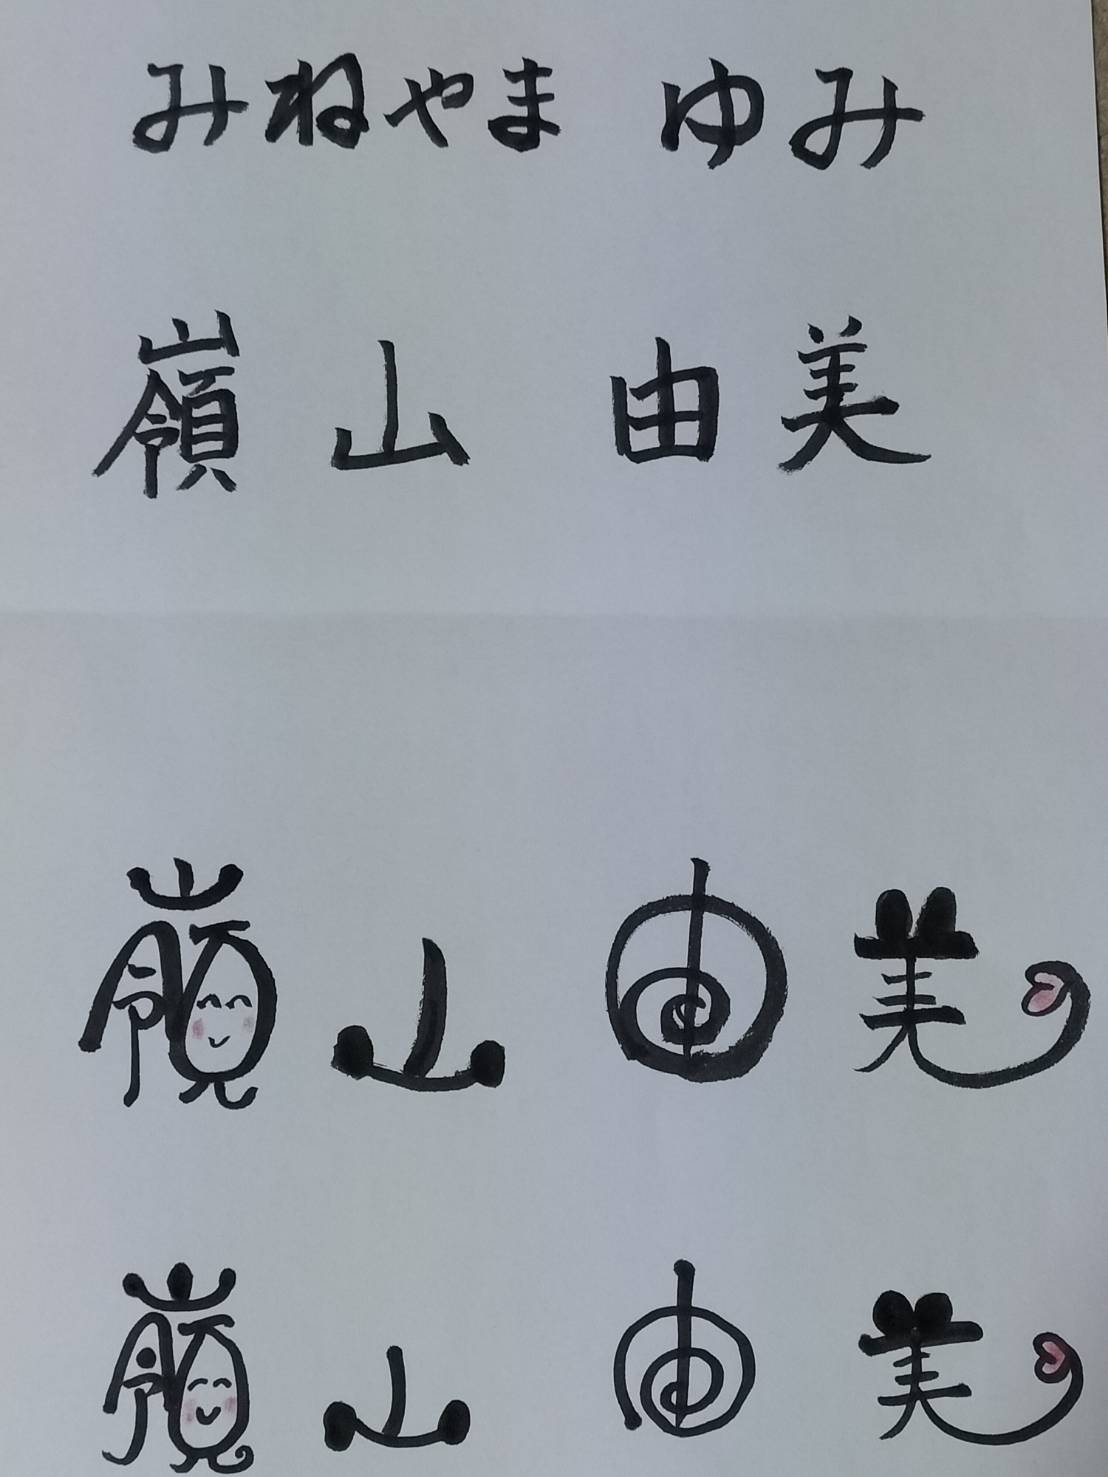 みねやま ゆみ
嶺 山 由 美
嶺 山 由 美
嶺 山 由 美